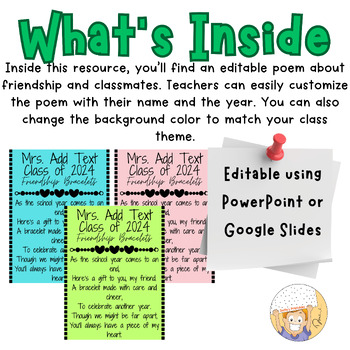 What's Inside
Inside this resource, you'll find an editable poem about
friendship and classmates. Teachers can easily customize
the poem with their name and the year. You can also
change the background color to match your class
theme.
Mrs. Add Text
Class of 2024
Friendship Bracelets
As the school year comes to an
Here's a gift to
A bracelet made
ch
To celebrate
Though we might
You'll always have
he
Mrs. Add Text
Class of 2024
Friendship Bracelets
school year comes to an
end,
to you, my friend.
with care and
cheer,
another year.
be far apart,
a piece of my
heart.
Mrs. Add Text
Class of 2024
Friendship Bracelets
As the school year comes to an
end,
Here's a gift to you, my friend.
A bracelet made with care and
cheer,
To celebrate another year.
Though we might be far apart,
You'll always have a piece of my
heart.
Editable using
PowerPoint or
Google Slides